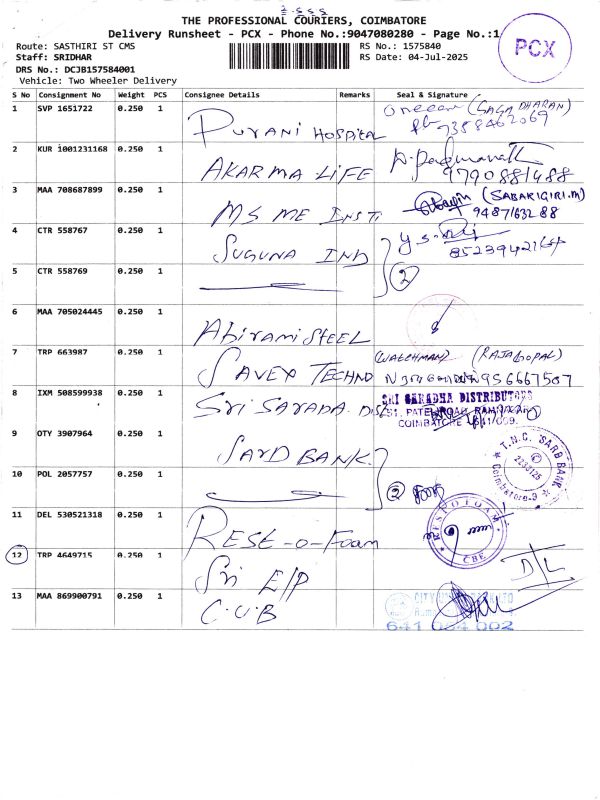 THE PROFESSIONAL COURIERS, COIMBATORE
Delivery Runsheet - PCX - Phone No.:9047080280 - Page No.:1
Route: SASTHIRI ST CMS
RS No.: 1575840
Staff: SRIDHAR
RS Date: 04-Jul-2025
DRS No.: DCJB157584001
Vehicle: Two Wheeler Delivery
PCX
S No Consignment No Weight PCS Consignee Details Remarks Seal & Signature
1 SVP 1651722 0.250 1 PURANI HOSPITAL (GAGADHARAN)
2 KUR 1001231168 0.250 1 AKARMA LIFE 9790881488
3 MAA 708687899 0.250 1 MS ME INSTI (SABARIGIRI.M)
9487163288
4 CTR 558767 0.250 1 SUGUNA IND
5 CTR 558769 0.250 1 2
6 MAA 705024445 0.250 1 Abirami STEEL
7 TRP 663987 0.250 1 SAVEX TECHNO (WATCHMAN) (RAJAGOPAL)
8 IXM 508599938 0.250 1 SRI SARADA DIS SRI SARADHA DISTRIBUTORS
COIMBATORE
9 OTY 3907964 0.250 1 SARD BANK T.N.C. SARD BANK
Coimbatore-9
10 POL 2057757 0.250 1 2
11 DEL 530521318 0.250 1 REST-O-Foam RESTOFOAM
CBE
12 TRP 4649715 0.250 1 Sri E/P D/L
13 MAA 869900791 0.250 1 C.U.B